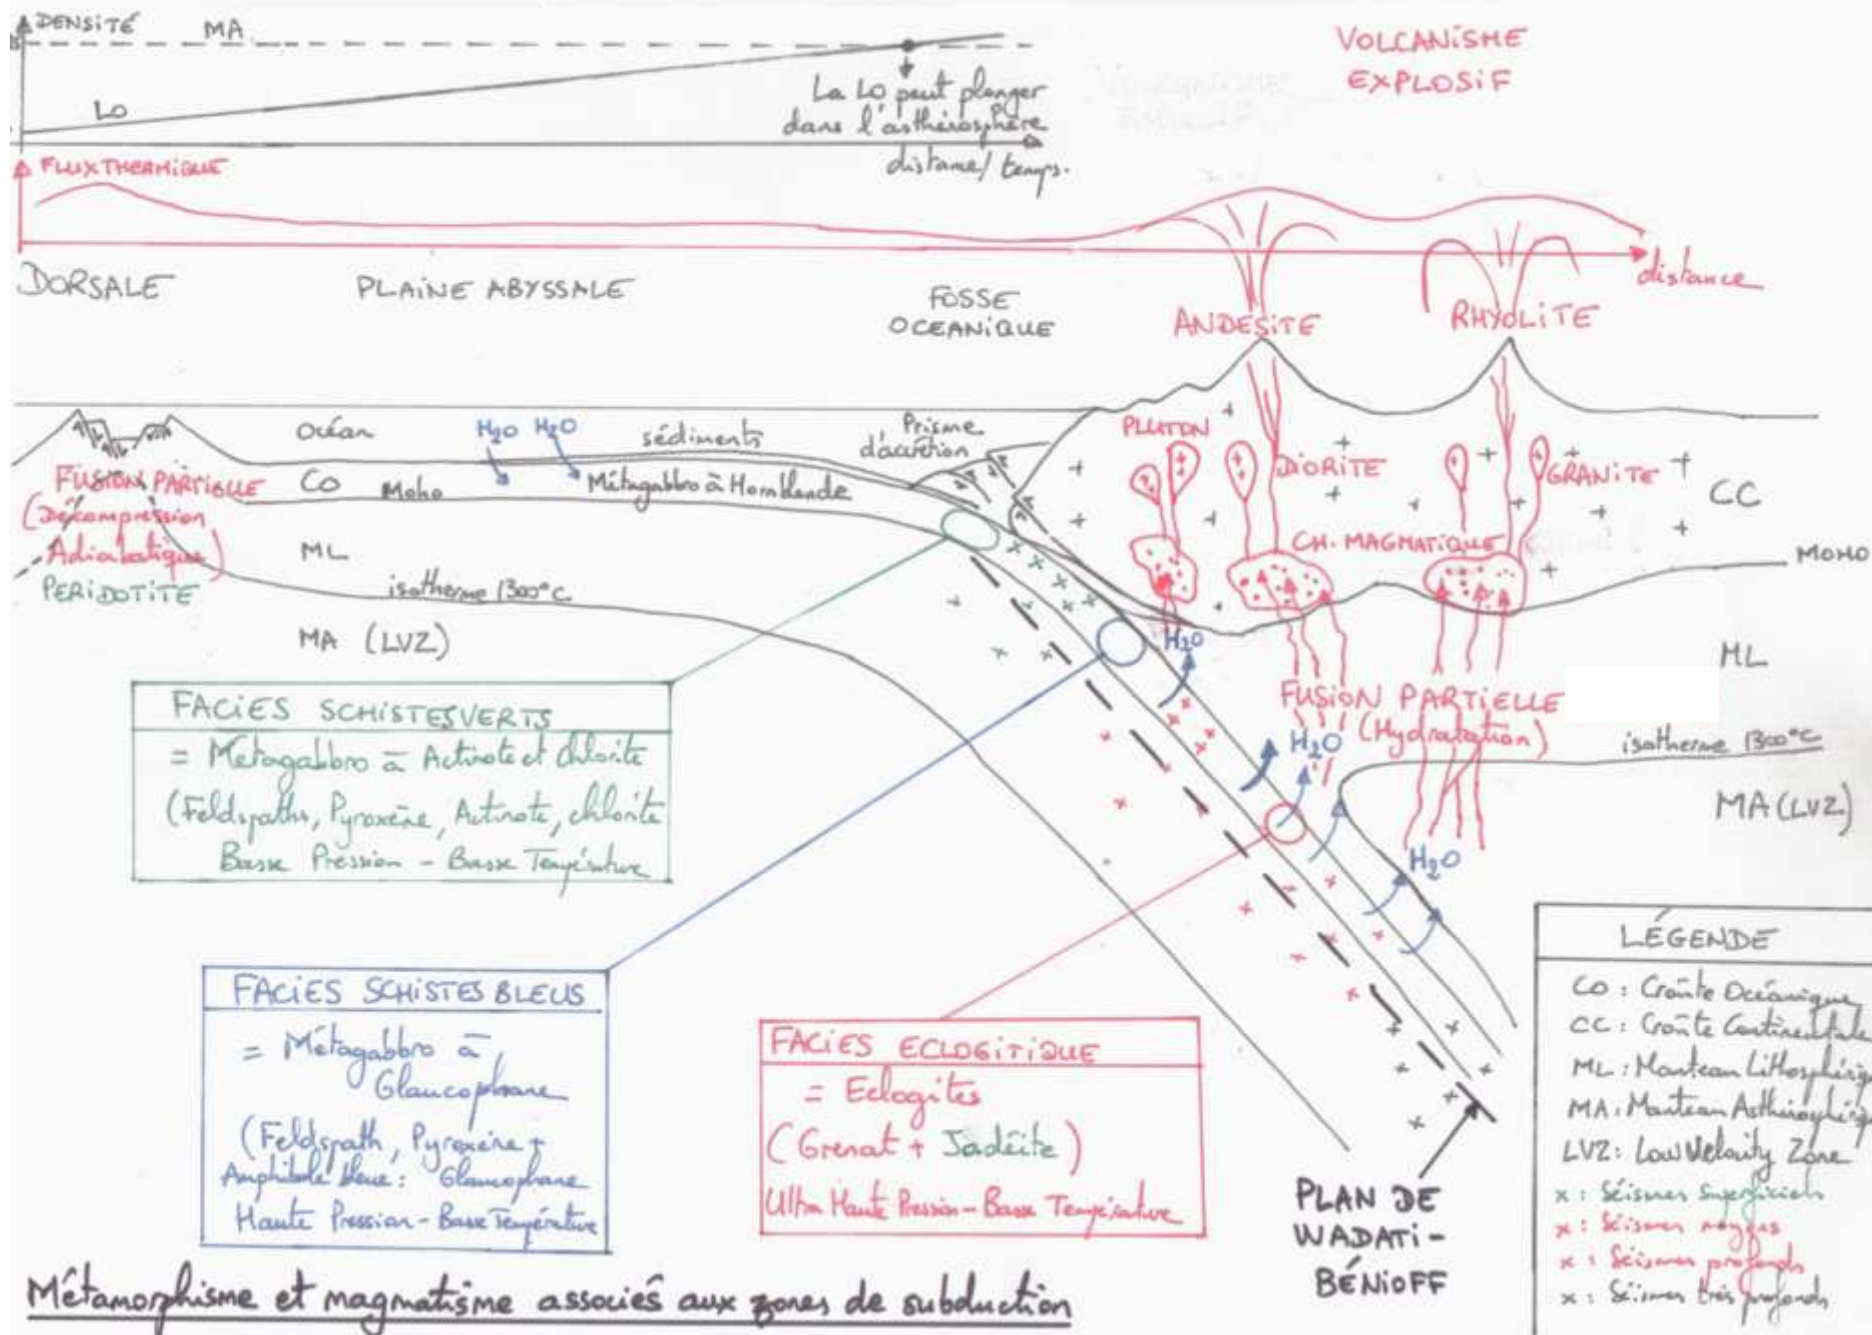 DENSITÉ
MA
LO
La LO peut plonger
dans l'asthénosphère
distance/temps.
VOLCANISME
EXPLOSIF
FLUX THERMIQUE
distance
DORSALE
PLAINE ABYSSALE
FOSSE
OCEANIQUE
ANDESITE
RHYOLITE
Océan
H2O H2O
sédiments
Prisme
d'accrétion
PLUTON
DIORITE
GRANITE
FUSION PARTIELLE
(Décompression
Adiabatique)
PERIDOTITE
CO
Moho
Métagabbro à Hornblende
CC
ML
CH. MAGMATIQUE
MOHO
isotherme 1300°C
MA (LVZ)
H2O
ML
FUSION PARTIELLE
(Hydratation)
H2O
isotherme 1300°C
MA (LVZ)
H2O
FACIES SCHISTES VERTS
= Métagabbro à Actinote et chlorite
(Feldspaths, Pyroxène, Actinote, chlorite
Basse Pression - Basse Température
FACIES SCHISTES BLEUS
= Métagabbro à
Glaucophane
(Feldspath, Pyroxène +
Amphibole bleue: Glaucophane
Haute Pression - Basse Température
FACIES ECLOGITIQUE
= Eclogites
(Grenat + Jadéite)
Ultra Haute Pression - Basse Température
PLAN DE
WADATI-
BÉNIOFF
LÉGENDE
CO : Croûte Océanique
CC : Croûte Continentale
ML : Manteau Lithosphériq
MA : Manteau Asthénosphériq
LVZ : Low Velocity Zone
x : Séismes superficiels
x : Séismes moyens
x : Séismes profonds
x : Séismes très profonds
Métamorphisme et magmatisme associés aux zones de subduction